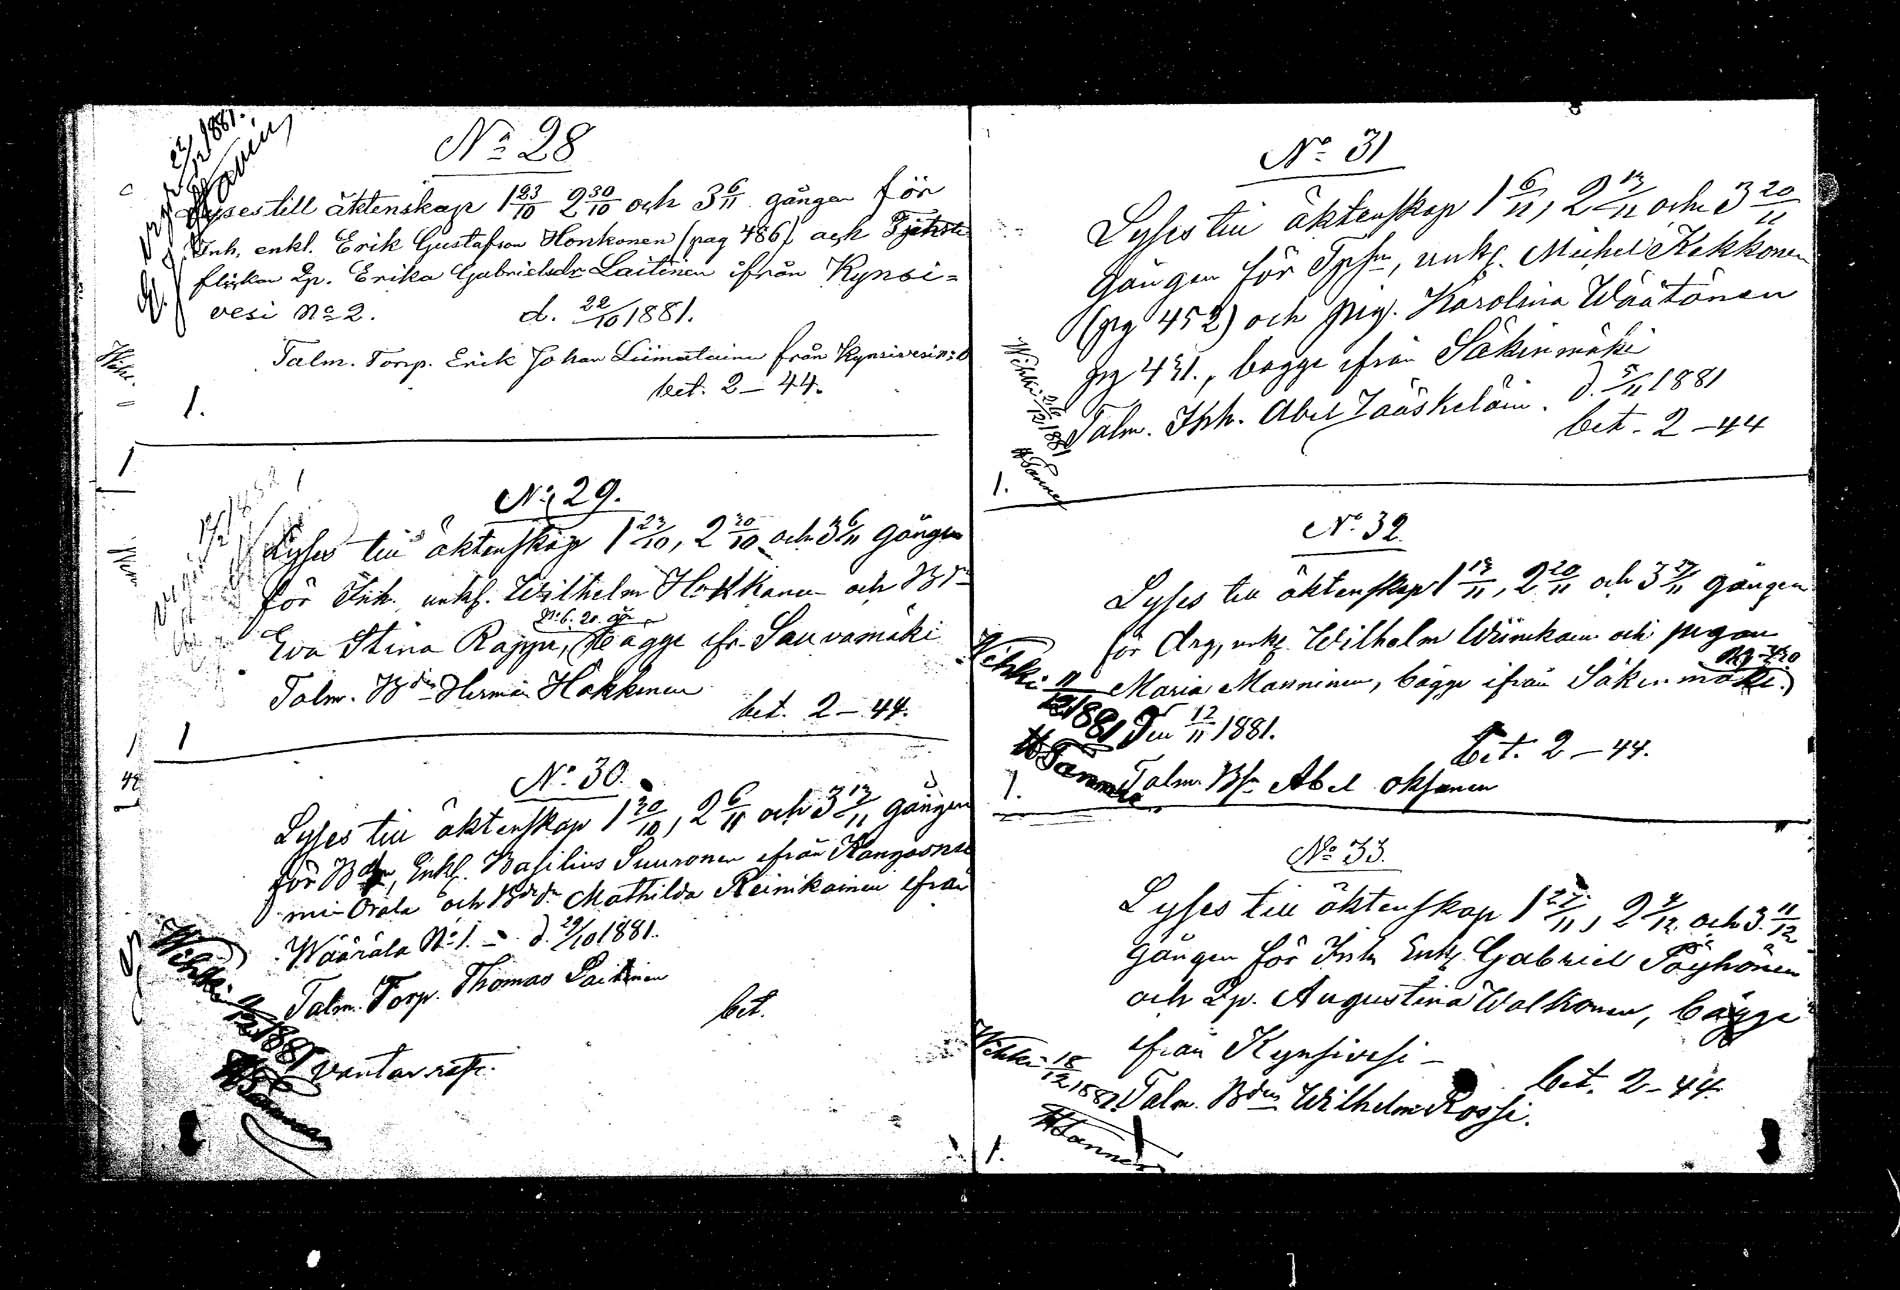 No 28
Lyses till äktenskap 1 23/10 2 30/10 och 3 6/11 gången för
Inh. enkl. Erik Gustafson Honkonen (pag 486) och
flickan Lp. Erika Gabrielsdr Laitinen ifrån Kynsi=
vesi No 2. d. 22/10 1881.
Talm. Torp. Erik Johan Liimatainen från Kynsivesi
bet. 2 – 44.
1.
No 29.
Lyses till äktenskap 1 23/10, 2 30/10 och 3 6/11 gången
för Inh. unkl. Wilhelm Hokkanen och
Eva Stina Rappu, bägge ifr. Sauvamäki
Talm. Bdn Herman Hakkinen
bet. 2 – 44.
1
No 30.
Lyses till äktenskap 1 30/10, 2 6/11 och 3 13/11 gången
för Bdn, Enkl. Basilius Suuronen ifrån Kangasnie
mi Orala och Bdr Mathilda Reinikainen ifrån
Wäärälä No 1. – d. 29/10 1881.
Talm. Torp. Thomas
bet.
Wihki 11/12 1881
H Tanner
No 31
Lyses till äktenskap 1 6/11, 2 13/11 och 3 20/11
gången för Tpsn, unkl. Michel Kekkonen
(pg 452) och pig. Karolina Wäätänen
pg 431., bägge ifrån Säkinmäki
d. 5/11 1881
Talm. Abel Jääskeläin.
bet. 2 – 44
Wihki 26/12 1881
H Tanner
1.
No 32.
Lyses till äktenskap 1 13/11, 2 20/11 och 3 27/11 gången
för Drg, unkl Wilhelm Wiinikain och pigan
Maria Manninen, bägge ifrån Säkinmäki.
Den 12/11 1881.
bet. 2 – 44.
Talm Abel Oksanen
Wihki 11/12 1881
H Tanner
1.
No 33.
Lyses till äktenskap 1 27/11, 2 4/12 och 3 11/12
gången för Inh Enkl Gabriel Pöyhönen
och Lp. Augustina Walkonen, bägge
ifrån Kynsivesi –
bet. 2 – 44.
Talm. Bdn Wilhelm Rossi.
Wihki 18/12 1881.
H Tanner
1.